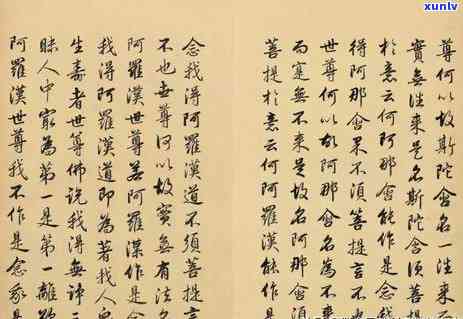 尊何以故斯陀含名一往來
實無往來是名斯陀含須菩
於意云何阿那含能作是念
得阿那含果不須菩提言不
世尊何以故阿那含名為不來
而實無不來是故名阿那含
菩提於意云何阿羅漢能作是
念我得阿羅漢道不須菩提
不也世尊何以故實無有法名
阿羅漢世尊若阿羅漢作是
我得阿羅漢道即為著我人
生壽者世尊佛說我得無諍三
昧人中最為第一是第一離欲
阿羅漢世尊我不作是念我是
xunlv